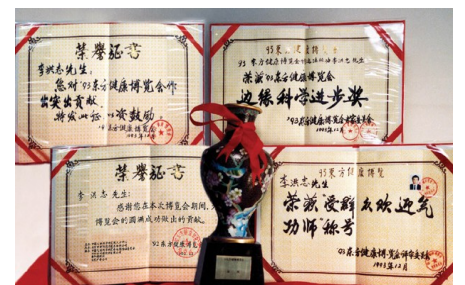 荣誉证书
李洪志先生:
您对'93东方健康博览会作
出突出贡献,
特发此证 以资鼓励
'93东方健康博览会
1993年12月
93东方健康博览会
荣获'93东方健康博览会
边缘科学进步奖
'93东方健康博览会评审委员会
1993年12月
荣誉证书
李洪志先生:
感谢您在本次博览会期间,
博览会的圆满成功做出的贡献。
'92东方健康博览会
93东方健康博览
李洪志先生
荣获受群众欢迎气
功师称号
93东方健康博览会评审委员会
1993年12月